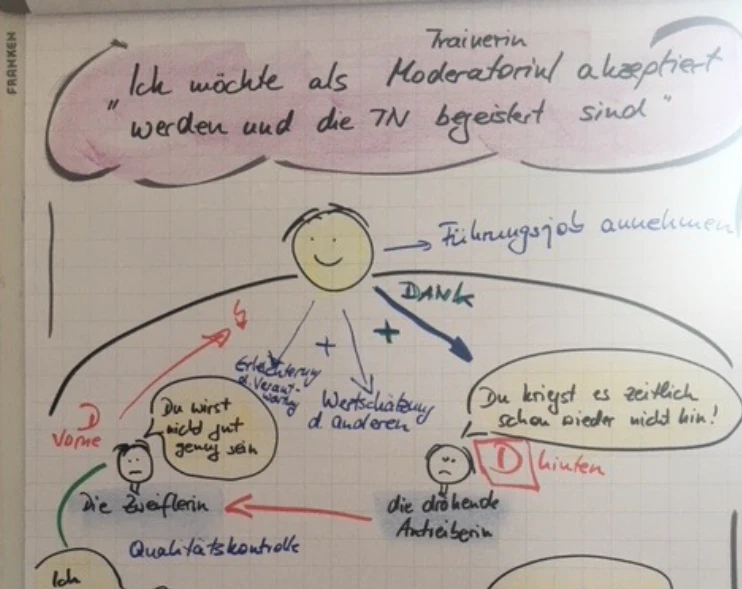 FRANKEN
Trainerin
"Ich möchte als Moderatorin/ akzeptiert
werden und die TN begeistert sind"
→ Führungsjob annehmen
DANK
+
+
Erleichterung
d. Verant-
wortung
Wertschätzung
d. anderen
Du kriegst es zeitlich
schon wieder nicht hin!
D
vorne
Du wirst
nicht gut
genug sein
D hinten
Die Zweiflerin
die dröhende
Antreiberin
Qualitätskontrolle
Ich